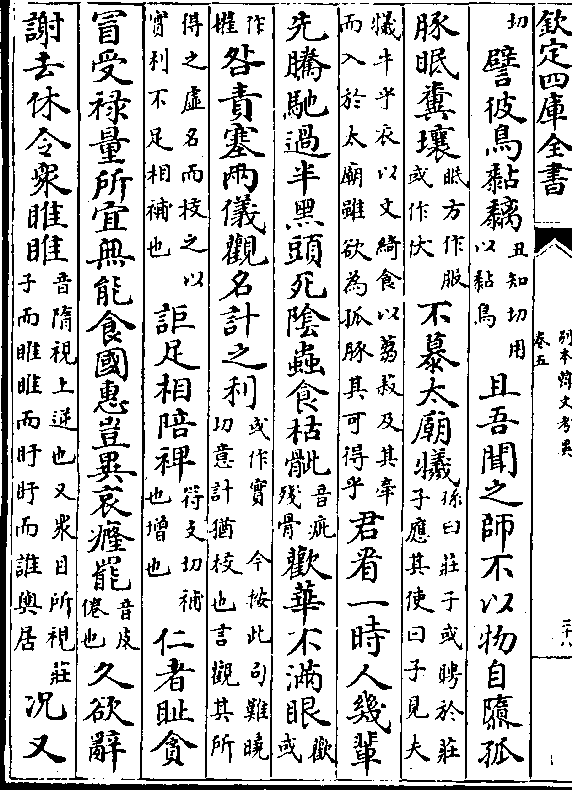 欽定四庫全書
別本韓文考異
卷五
切譬彼鳥黏黐丑知切用以黏鳥且吾聞之師不以物自隳孤
豚眠糞壤眠方作服或作伏不慕太廟犧孫曰莊子或聘於莊子應其使曰子見夫
犧牛乎衣以文綺食以芻菽及其牽而入於太廟雖欲為孤豚其可得乎君看一時人幾輩
先騰馳過半黑頭死陰蟲食枯骴音疵殘骨歡華不滿眼歡或
作懽咎責塞兩儀觀名計之利或作實今按此句難曉切意計猶校也言觀其所
得之虛名而校之以實利不足相補也詎足相陪裨符支切補也增也仁者恥貪
冒受祿量所宜無能食國惠豈異哀癃罷音皮倦也久欲辭
謝去休令衆睢睢音隋視上逆也又衆目所視莊子而睢睢而盱盱而誰與居況又